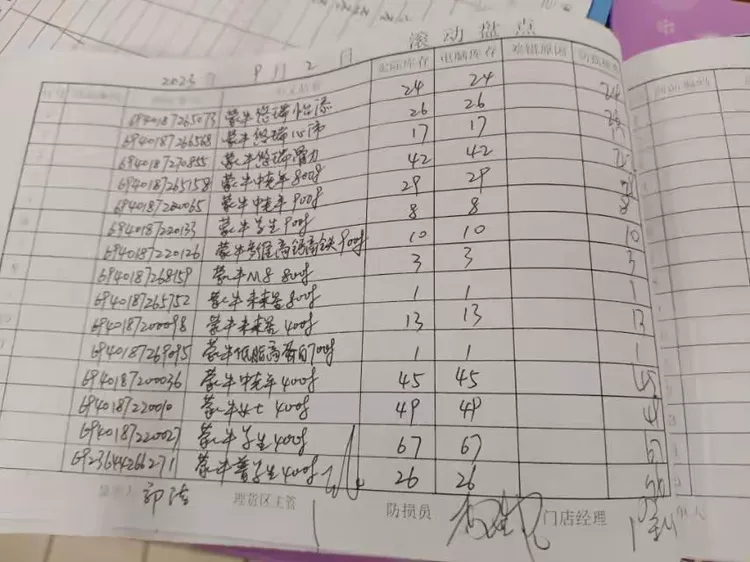 滚动盘点
2023年 9月 2日
实际库存 电脑库存 差错原因
6940187265073 蒙牛悠瑞怡添 24 24 24
6940187266568 蒙牛悠瑞心沛 26 26
6940187270855 蒙牛悠瑞骨力 17 17
6940187265158 蒙牛中老年800g 42 42
6940187200065 蒙牛中老年900g 29 29
6940187220133 蒙牛学生900g 8 8 8
6940187220126 蒙牛多维高钙高铁900g 10 10 10
6940187268159 蒙牛M8 800g 3 3 3
6940187265752 蒙牛未来星800g 1 1 1
6940187200098 蒙牛未来星400g 13 13 13
6940187269095 蒙牛低脂高蛋白700g 1 1 1
6940187200036 蒙牛中老年400g 45 45 45
6940187220010 蒙牛女士400g 49 49
6940187220027 蒙牛学生400g 67 67 67
6923644266271 蒙牛普学生400g 26 26
理货区主管 防损员 门店经理